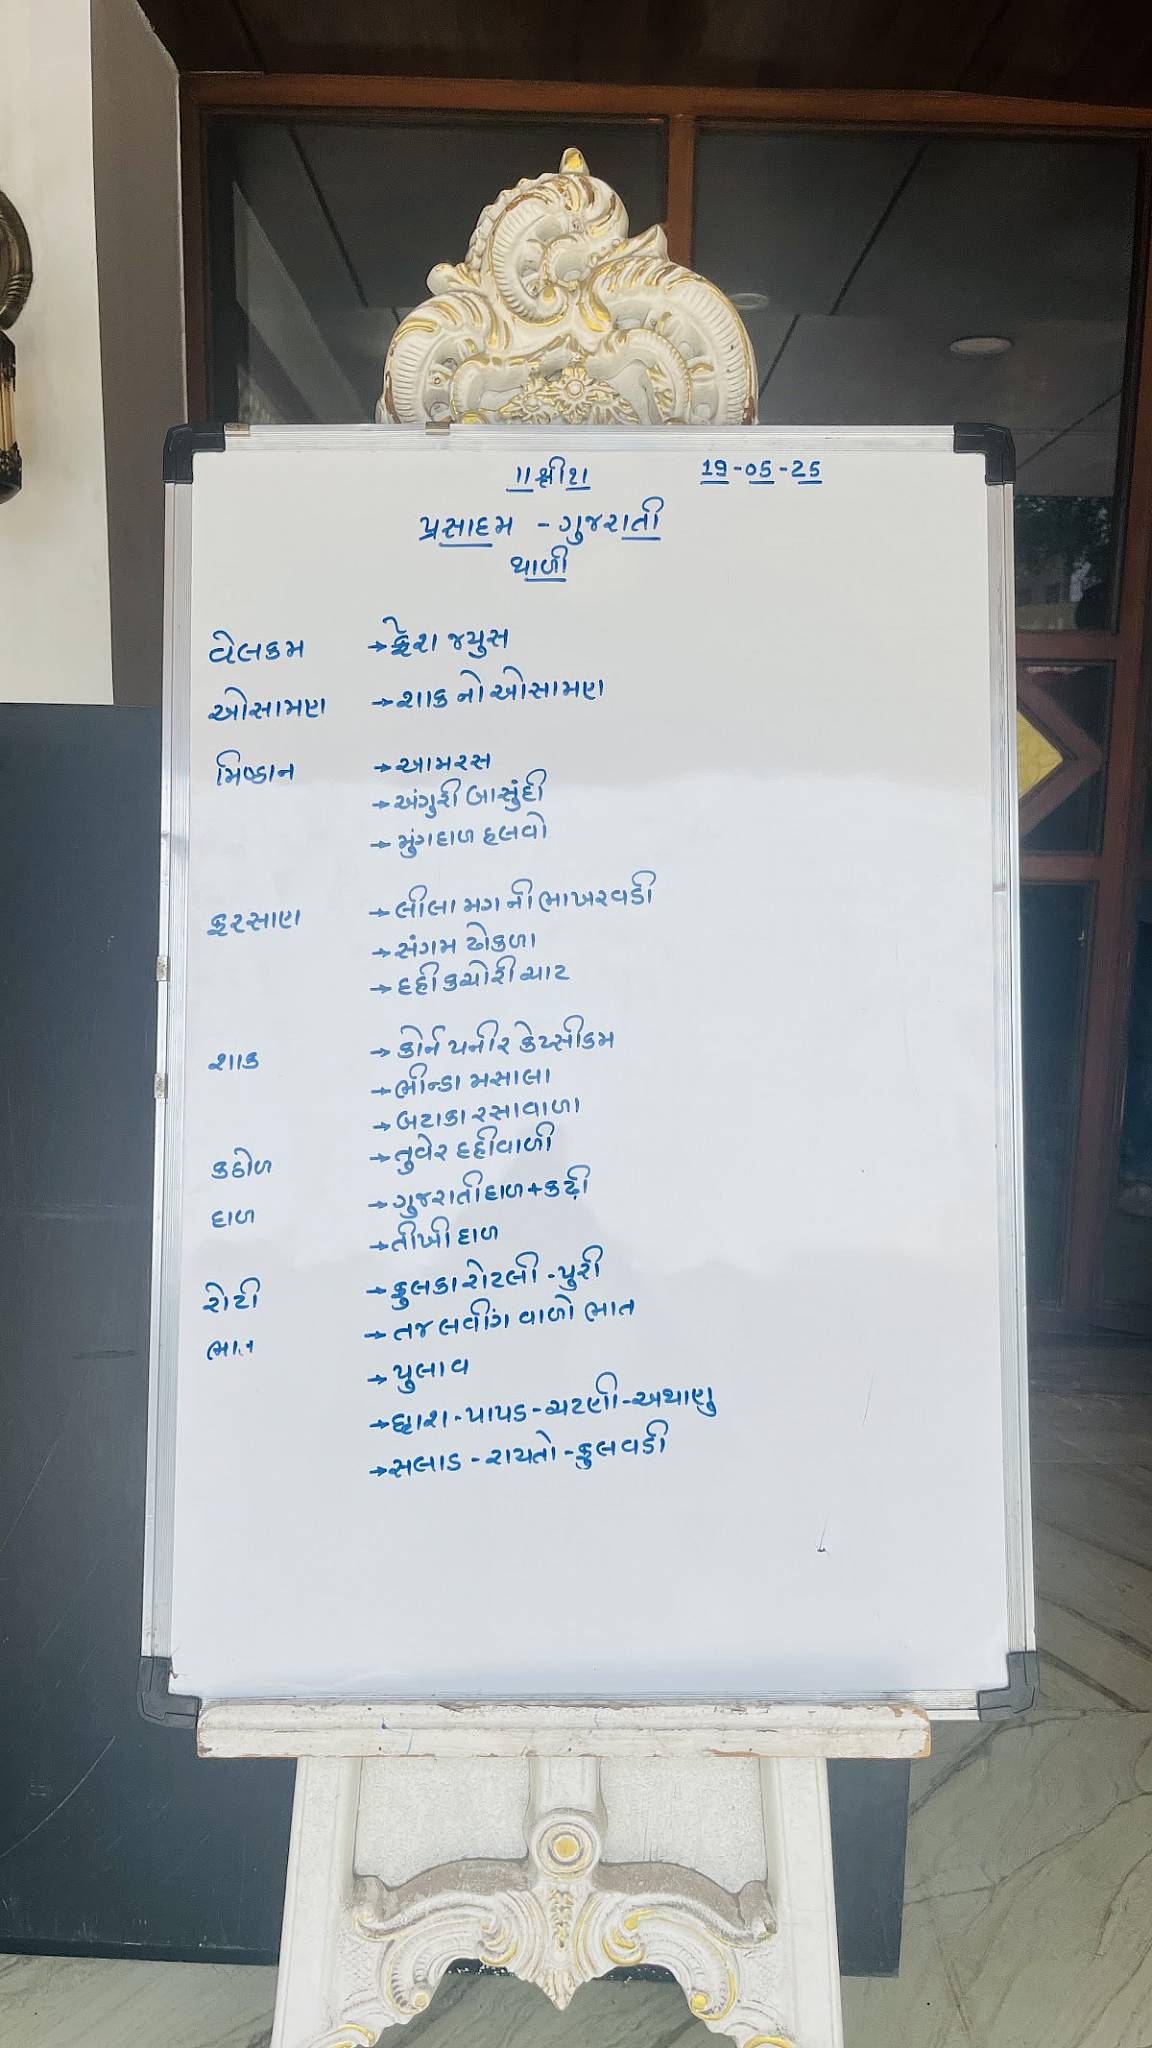 ॥श्री१॥ 19-05-25
પ્રસાદમ - ગુજરાતી
થાળી
વેલકમ → ફ્રેશ જ્યુસ
ઓસામણ → શાક નો ઓસામણ
મિષ્ઠાન → આમરસ
→ અંગુરી બાસુંદી
→ મુંગદાળ હલવો
ફરસાણ → લીલા મગ ની ભાખરવડી
→ સંગમ ઢોકળા
→ દહીં કચોરી ચાટ
શાક → કોર્ન પનીર કેપ્સીકમ
→ ભીન્ડા મસાલા
→ બટાકા રસાવાળા
કઠોળ → તુવેર દહીંવાળી
દાળ → ગુજરાતી દાળ + કઢી
→ તીખી દાળ
રોટી → ફુલકા રોટલી - પુરી
ભાત → તજ લવીંગ વાળો ભાત
→ પુલાવ
→ છાશ - પાપડ - ચટણી - અથાણુ
→ સલાડ - રાયતો - ફુલવડી